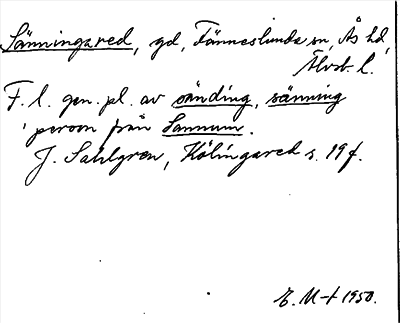 Sänningsred, gd, Fänneslunda sn, Ås hd,
Älvsb. l.
F. l. gen. pl. av sänding, sänning
'person från Sannum.
J. Sahlgren, Hölingared s. 19 f.
E. M-t 1950.